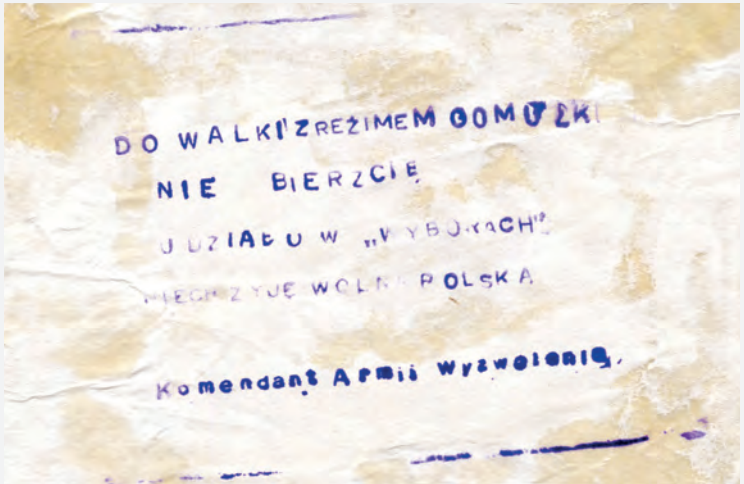 DO WALKI Z REŻIMEM GOMUŁKI
NIE BIERZCIE
UDZIAŁU W „WYBORACH”
NIECH ŻYJE WOLNA POLSKA
Komendant Armii Wyzwolenia.